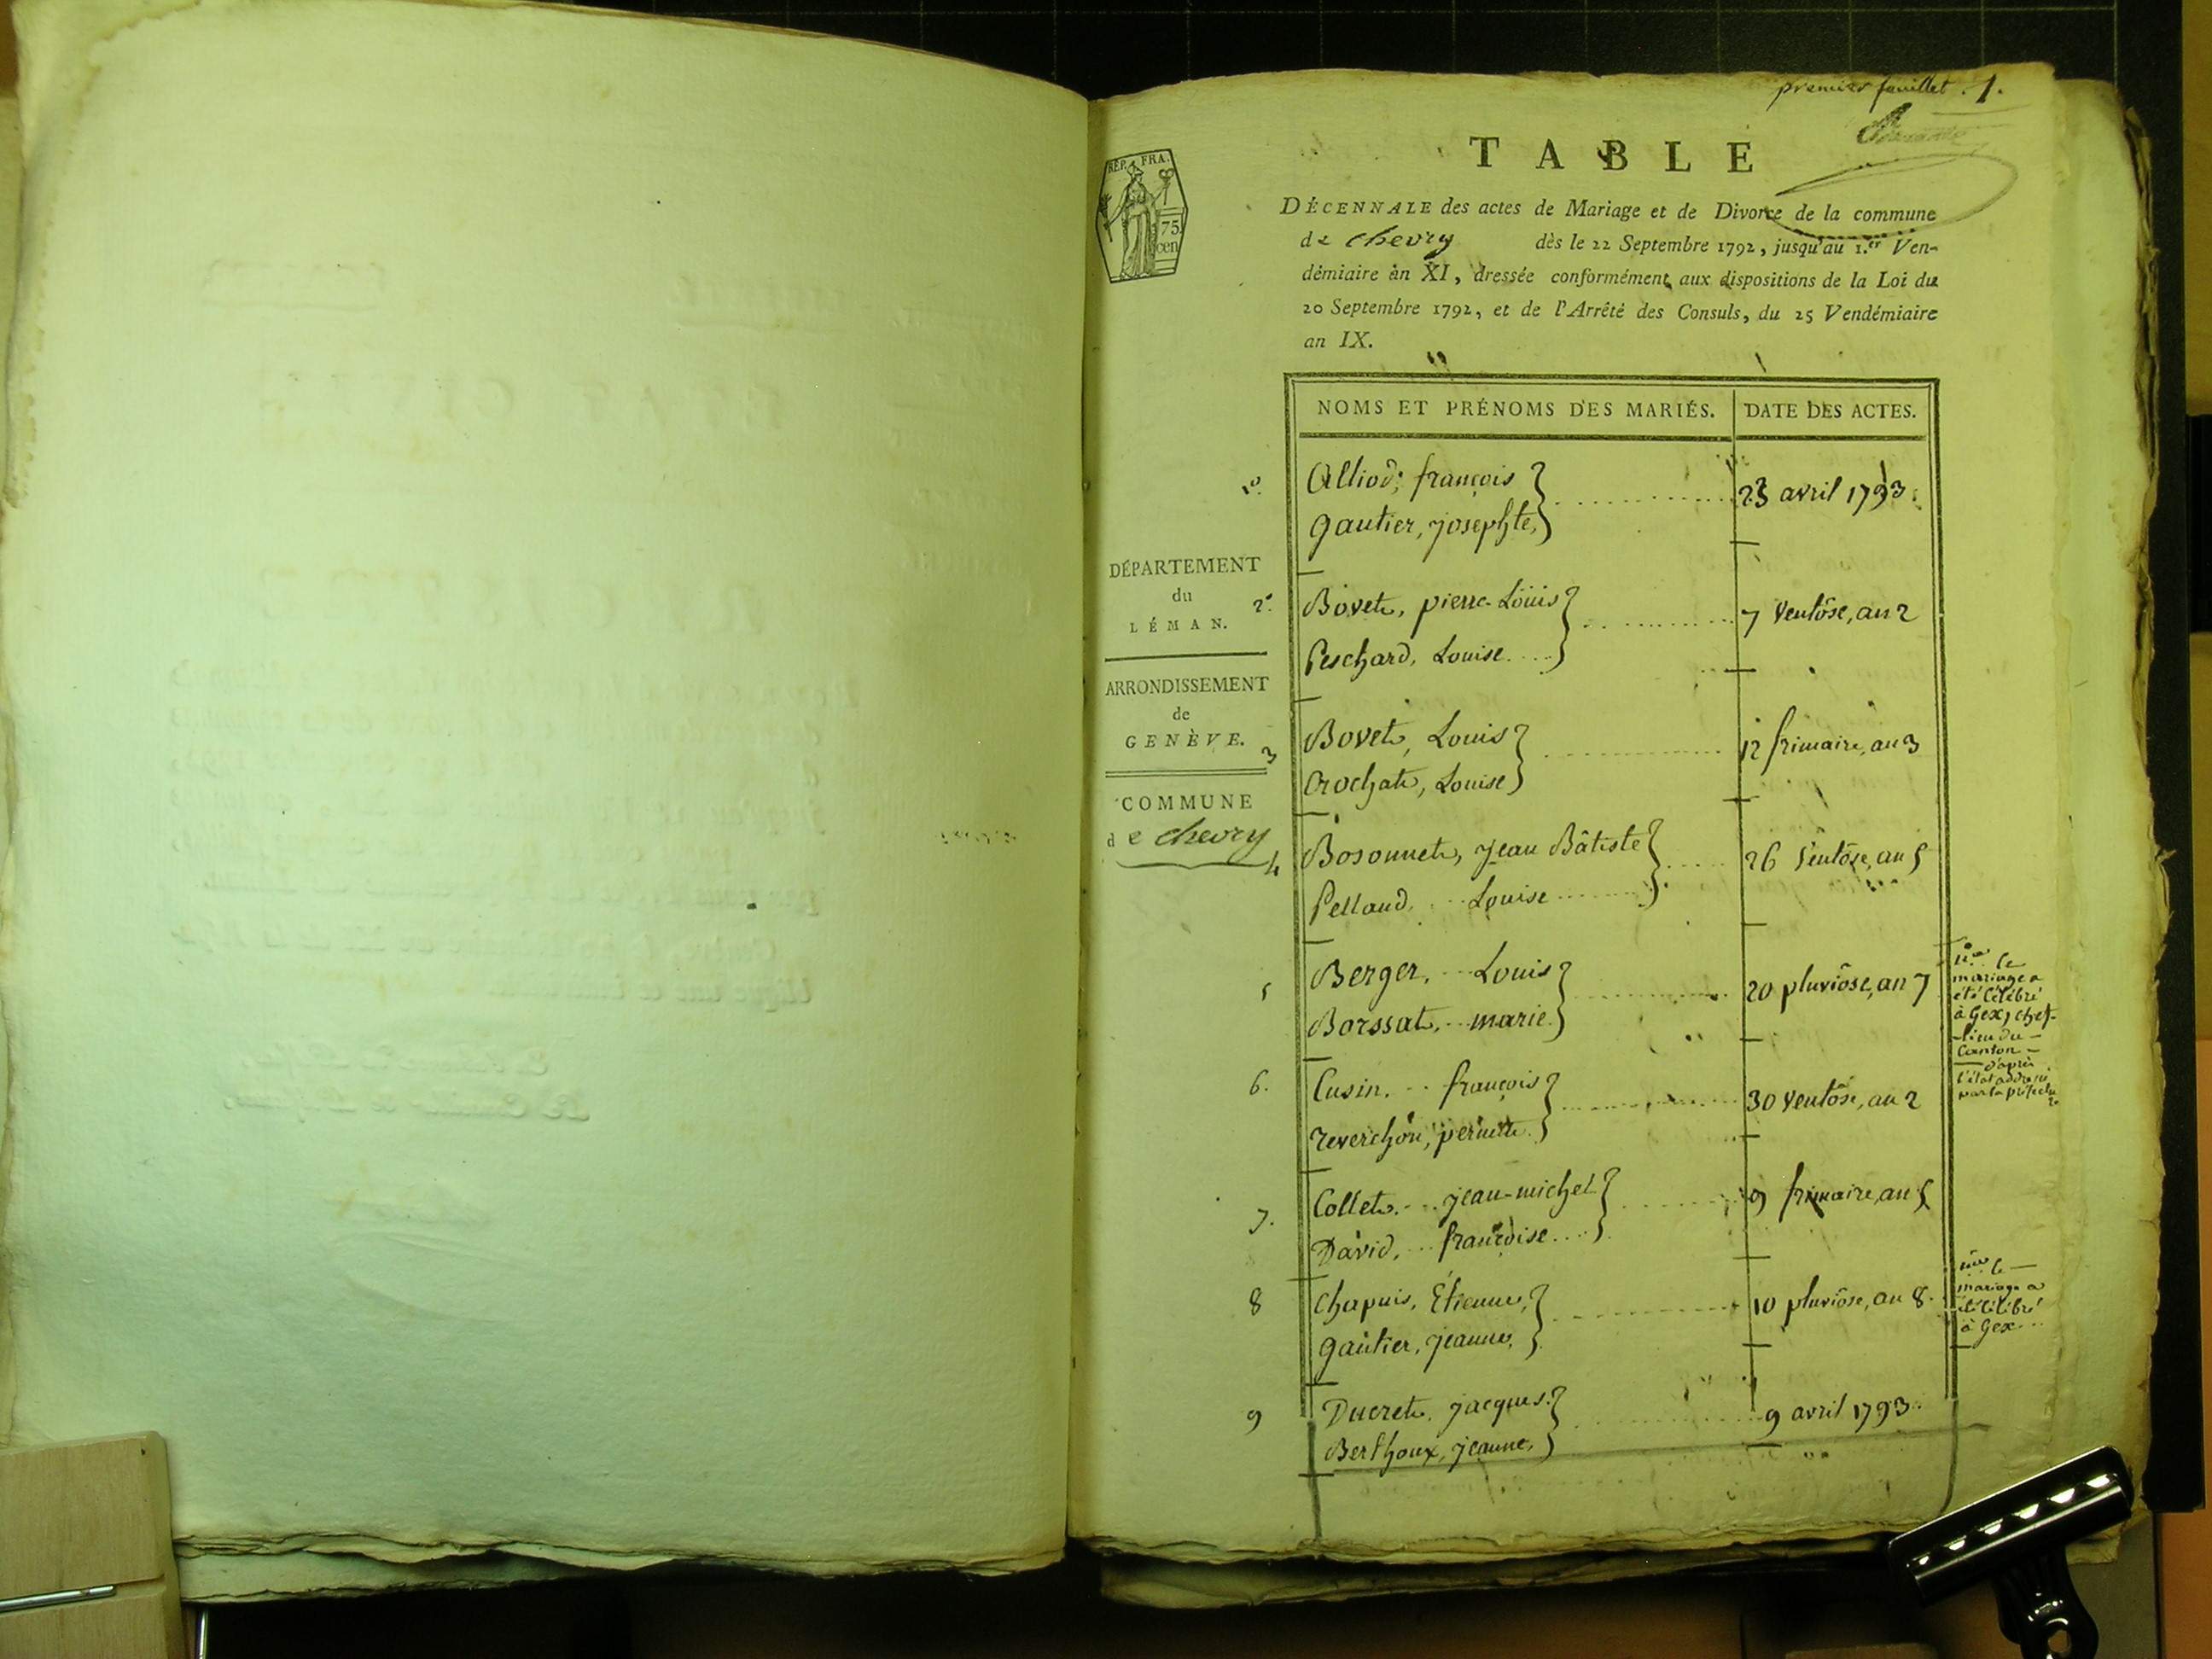 premier feuillet. 1.
REP. FRA.
75.
cen
TABLE
DÉCENNALE des actes de Mariage et de Divorce de la commune
de chevry dès le 22 Septembre 1792, jusqu'au 1.er Ven-
démiaire an XI, dressée conformément aux dispositions de la Loi du
20 Septembre 1792, et de l'Arrêté des Consuls, du 25 Vendémiaire
an IX.
NOMS ET PRÉNOMS DES MARIÉS. DATE DES ACTES.
DÉPARTEMENT
du
LÉMAN.
ARRONDISSEMENT
de
GENÈVE.
COMMUNE
de chevry
1º. Alliod, françois
23 avril 1793.
Gautier, josephte,
2º. Bovet, pierre-Louis
7 Ventôse, an 2
Peschard, Louise....
3 Bovet, Louis
12 frimaire, an 3
Crochat, Louise
4 Bosonnet, jean Bâtiste
26 Ventôse, an 5
Pelland, ... Louise
5 Berger, ... Louis
20 pluviôse, an 7
Borssat, ... marie.
le
mariage a
été célébré
à Gex, chef-
lieu du
Canton
d'après
6. Cusin, ... françois
30 Ventôse, an 2
reverchon, pernette
7. Collet, ... jean-michel
9 frimaire, an 5
David, ... françoise....
8 Chapuis, Étienne,
10 pluviôse, an 8.
Gautier, jeanne,
le
mariage a
été célébré
à Gex...
9 Ducret, jacques.
9 avril 1793.
Berthoux, jeanne,